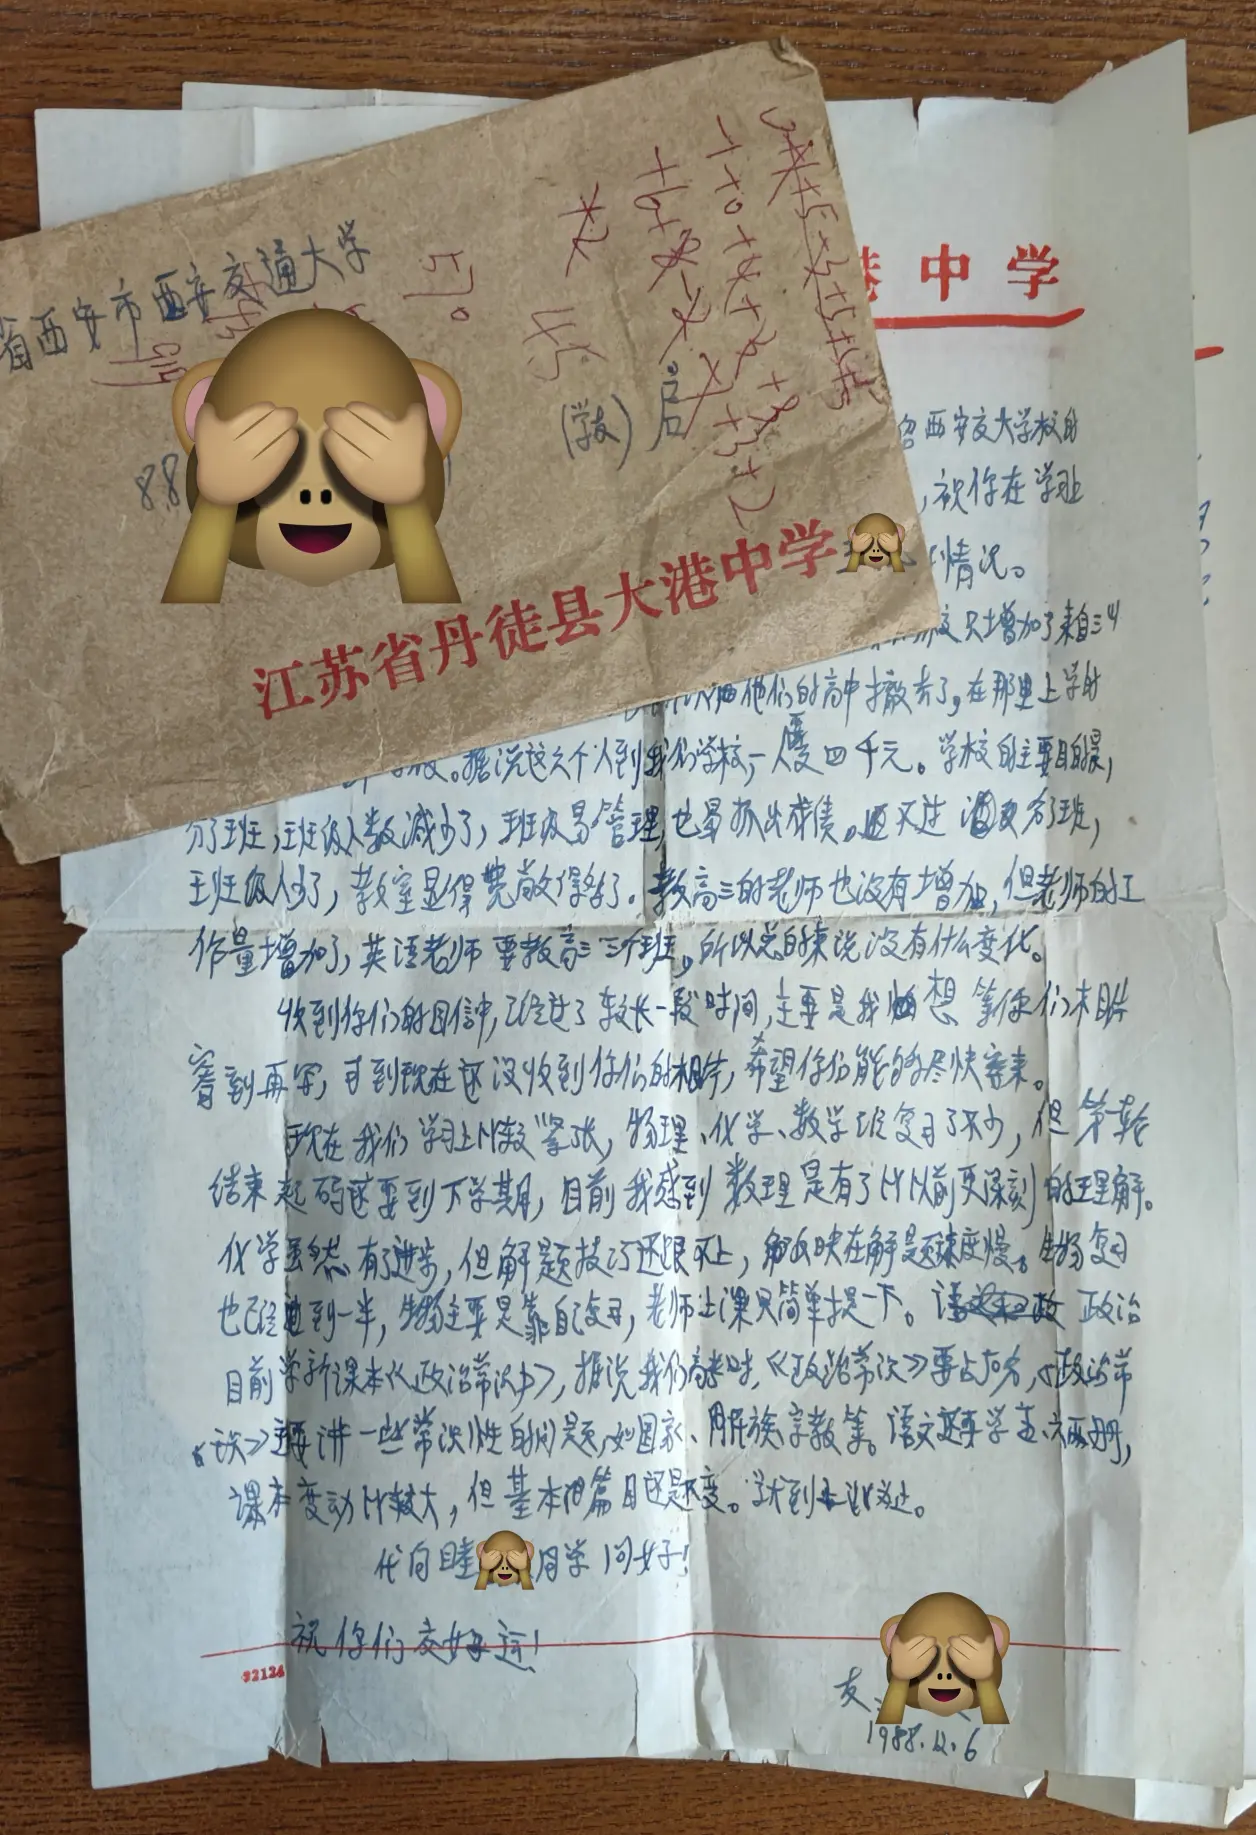 省西安市西安交通大学
88
(学友) 启
江苏省丹徒县大港中学
570
45
港中学
西安交大学校的
,祝你在学习上
情况。
校只增加了来自三
他们的高中撤去了,在那里上学的
。据说这六个人到我们学校,一人要四千元。学校的主要目的是,
分了班,班级人数减少了,班级易管理,也易抓出成绩。
班级人少了,教室显得宽敞得多了。教高三的老师也没有增加,但老师的工
作量增加了,英语老师要教高三三个班。所以总的来说没有什么变化。
收到你们的回信中,已经过了较长一段时间,主要是我想等你们相片
寄到再写,可到现在还没收到你们的相片,希望你们能够尽快寄来。
现在我们学习上比较紧张,物理、化学、数学已复习了不少,但第一轮
结束起码还要到下学期,目前我感到数理是有了比以前更深刻的理解。
化学虽然有了进步,但解题技巧还跟不上,反映在解题速度慢。生物复习
也已经进到一半,生物主要是靠自己复习,老师上课只简单提一下。政治
目前学新课本《政治常识》,据说我们高考时,《政治常识》要占,《政治常
识》主要讲一些常识性的问题,如国家、民族、宗教等。语文还要学五、六两册,
课本变动比较大,但基本的篇目还是不变。就到此为止。
代向眭同学问好!
祝你们交好运!
92124
友
1988.12.6